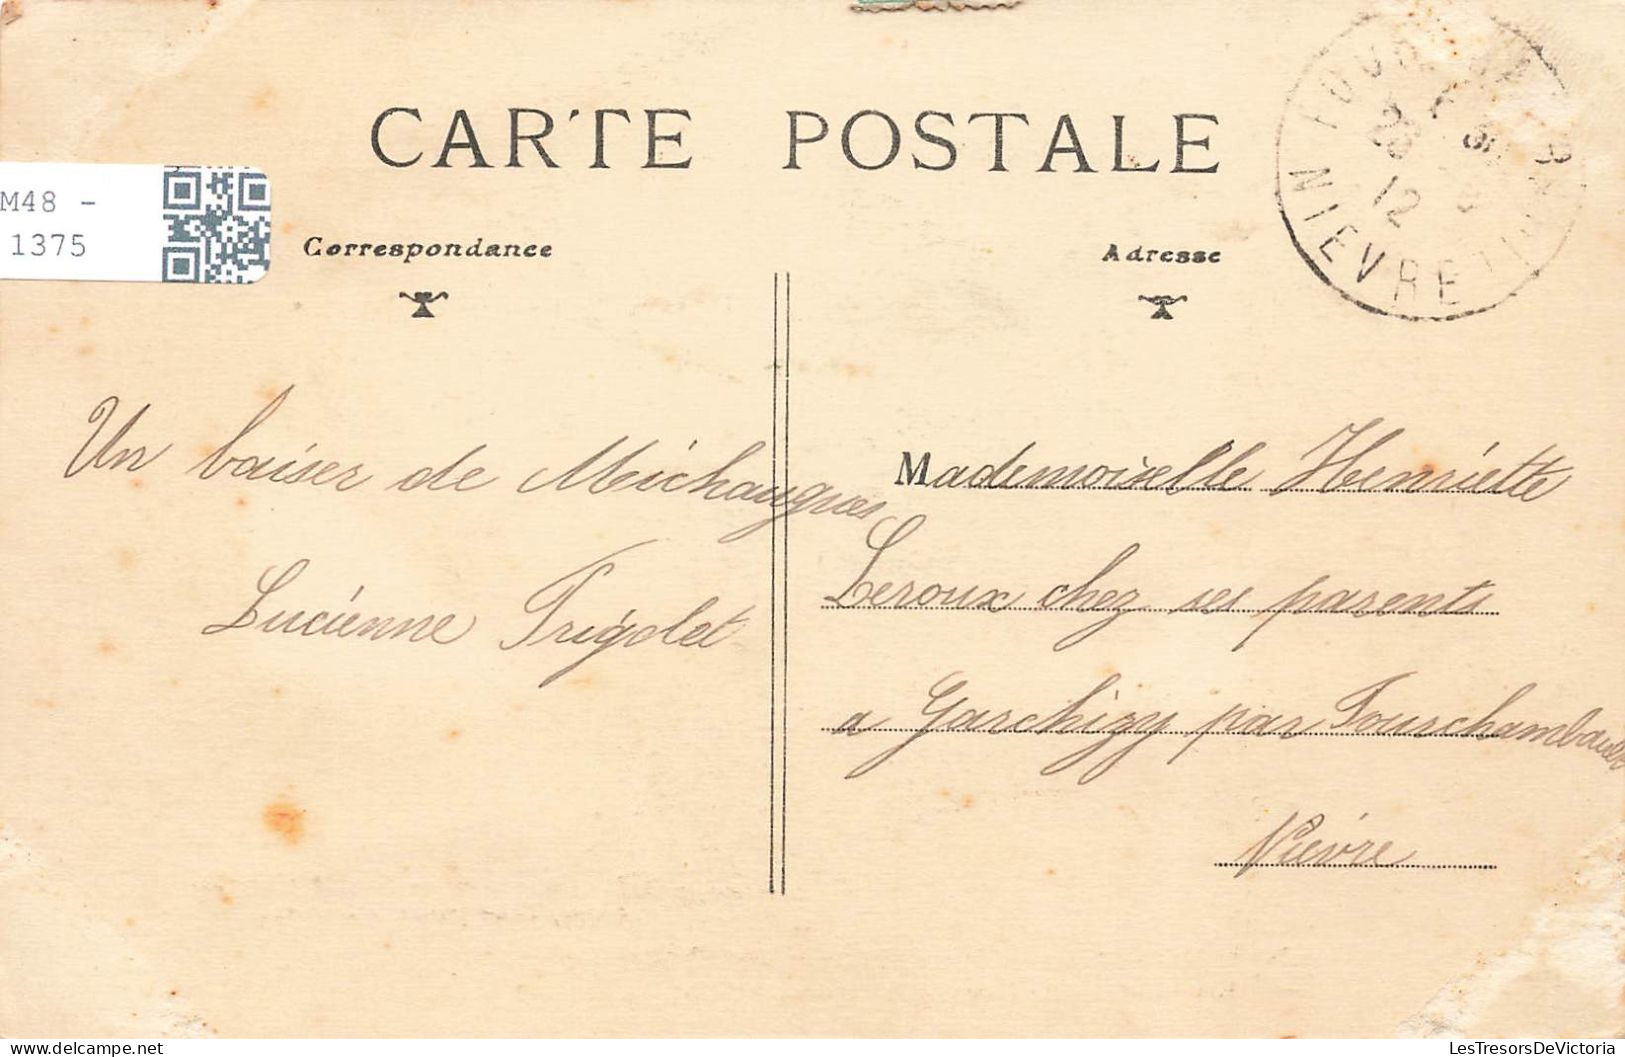 CARTE POSTALE
M48 -
1375
Correspondance
Adresse
NIEVRE
12
Un baiser de Michaugues
Lucienne Trigolet
Mademoiselle Henriette
Leroux chez ses parents
a Garchizy par Fourchambault
Nièvre
LesTresorsDeVictoria